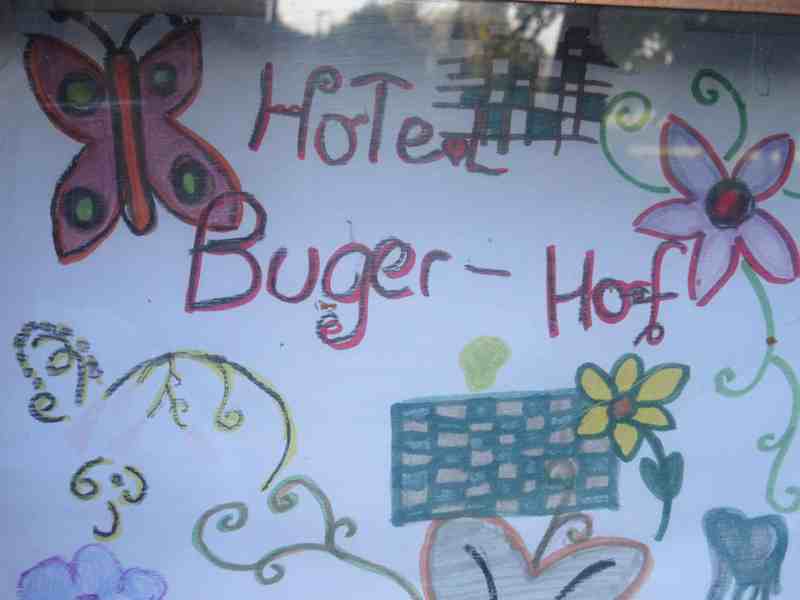 HoTeL
Buger-Hof